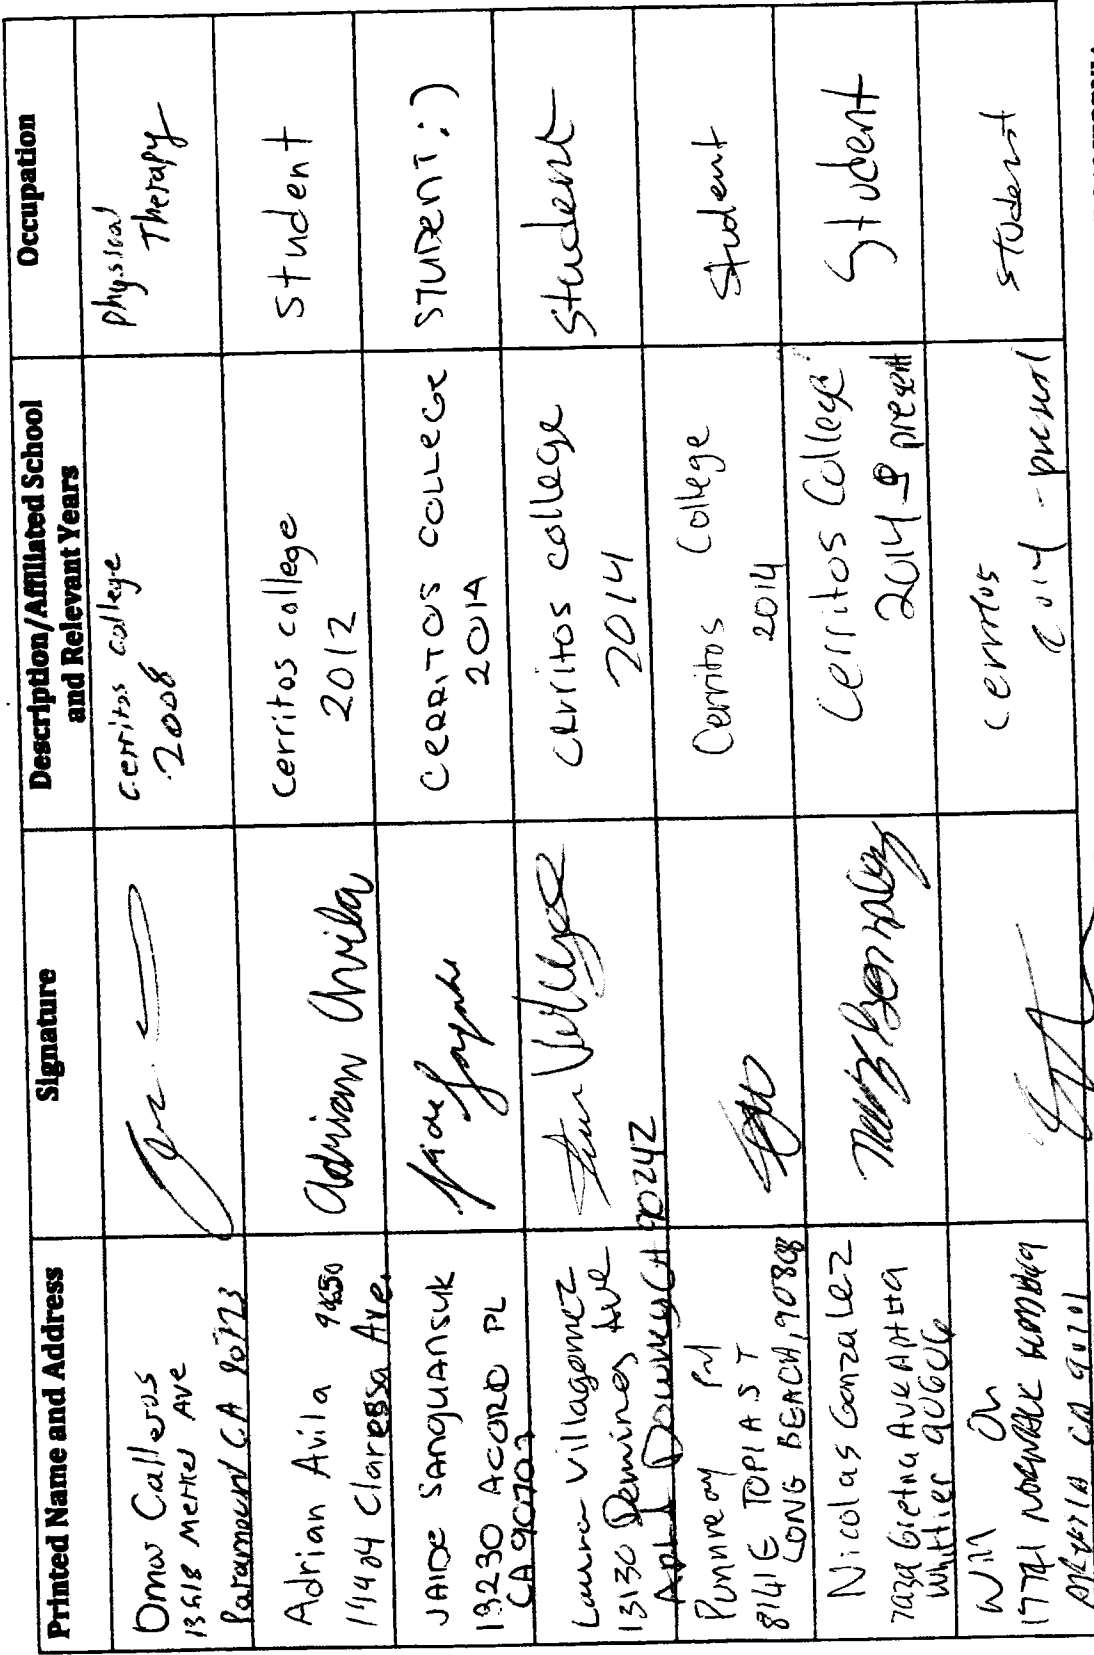 Printed Name and Address
Signature
Description/Affiliated School
and Relevant Years
Occupation
Omar Calleros
13618 Merkel Ave
Paramount CA 90723
cerritos college
2008
Physical
Therapy
Adrian Avila
Claressa Ave.
Adrian Avila
cerritos college
2012
Student
JAIDE SANGUANSUK
13230 ACORO PL
CA 90703
CERRITOS COLLEGE
2014
STUDENT :)
Laura Villagomez
13130 Deming Ave
Downey CA 90242
cerritos college
2014
Student
Punnreay
8141 E TOPIA ST
LONG BEACH, 90808
Cerritos College
2014
Student
Nicolas Gonzalez
Gretna Ave Apt #9
Whittier 90606
Cerritos College
2014 - present
Student
Will Oh
NORWALK
ARTESIA CA 90701
cerritos
2014 - present
student